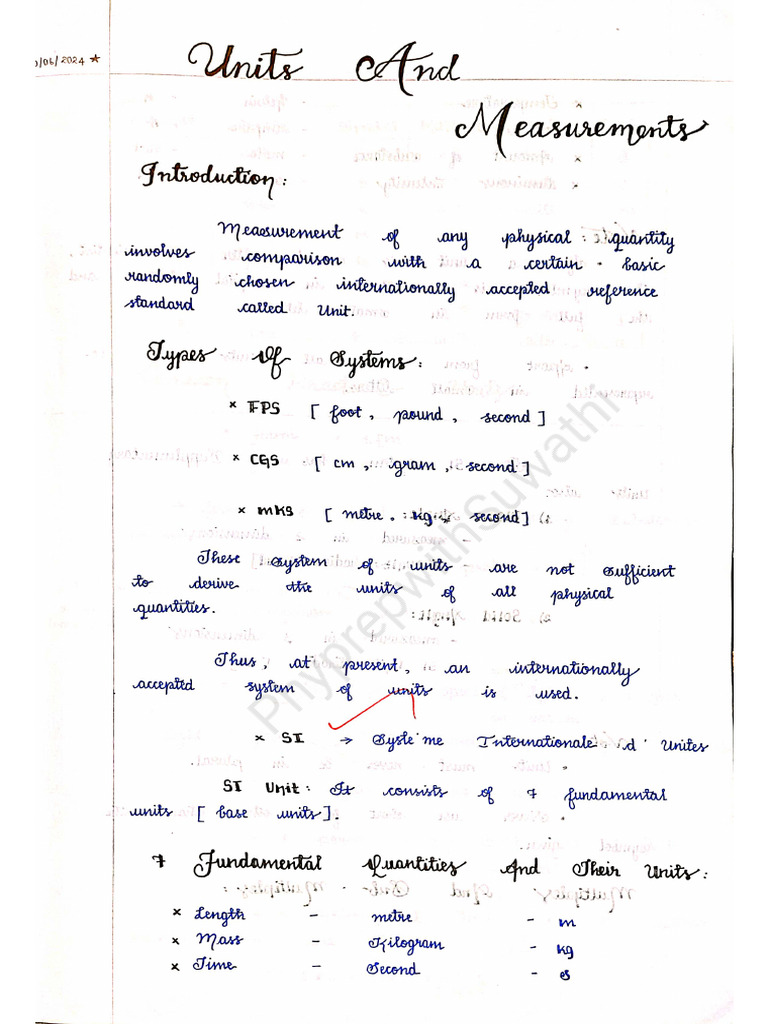 /06/2024 *
Units And
Measurements
Introduction:
Measurement of any physical quantity
involves comparison with a certain basic
randomly chosen internationally accepted reference
standard called Unit.
Types Of Systems:
× FPS [ foot, pound, second ]
× CGS [ cm, gram, second ]
× MKS [ metre, kg, second ]
These system of units are not sufficient
to derive the units of all physical
quantities.
Thus, at present, an internationally
accepted system of units is used.
× SI → Syste'me Internationale d' Unites
SI Unit: It consists of 7 fundamental
units [ base units ].
7 Fundamental Quantities And Their Units:
× Length - metre - m
× Mass - Kilogram - kg
× Time - Second - s
PhyprepwithSuwathi